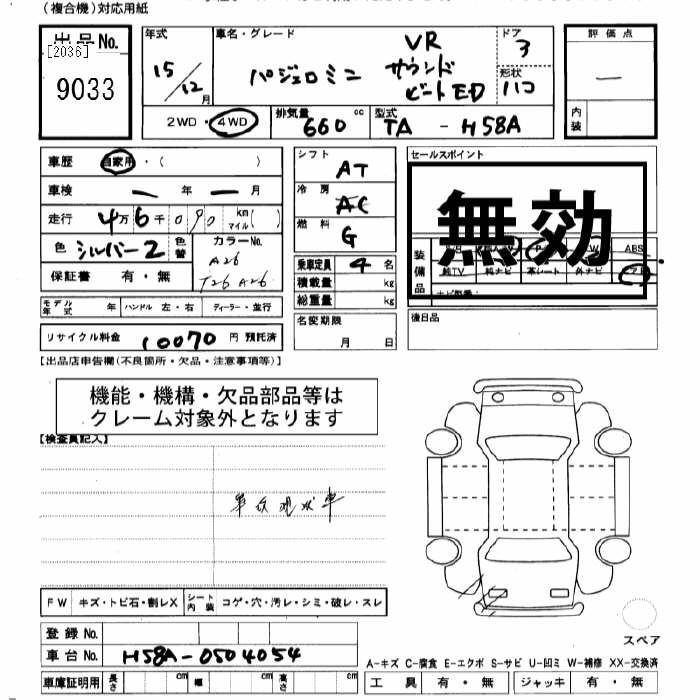 (複合機)対応用紙
出品No.
[2036]
9033
年式
15/12月
車名・グレード
パジェロミニ
VR
サウンド
ビートED
ドア
3
形状
ハコ
評価点
―
内装
2WD・4WD
排気量
660
cc
型式
TA - H58A
車歴
自家用・( )
車検
― 年 ― 月
走行
4万6千090 km マイル( )
色
シルバー2
色替
カラーNo.
A26
T26 A26
保証書 有・無
モデル年式 年
ハンドル 左・右
ディーラー・並行
リサイクル料金 10070 円 預託済
シフト
AT
冷房
AC
燃料
G
乗車定員 4 名
積載量 kg
総重量 kg
名変期限
月 日
セールスポイント
無効
装備品
ABS
純TV 純ナビ 革シート 外ナビ
後日品
【出品店申告欄(不良箇所・欠品・注意事項等)】
機能・機構・欠品部品等は
クレーム対象外となります
【検査員記入】
FW キズ・トビ石・割レX
シート内装 コゲ・穴・汚レ・シミ・破レ・スレ
登録No.
車台No. H58A-0504054
車庫証明用 長さ cm 幅 cm 高さ cm
スペア
A-キズ C-腐食 E-エクボ S-サビ U-凹ミ W-補修 XX-交換済
工具 有・無 ジャッキ 有・無